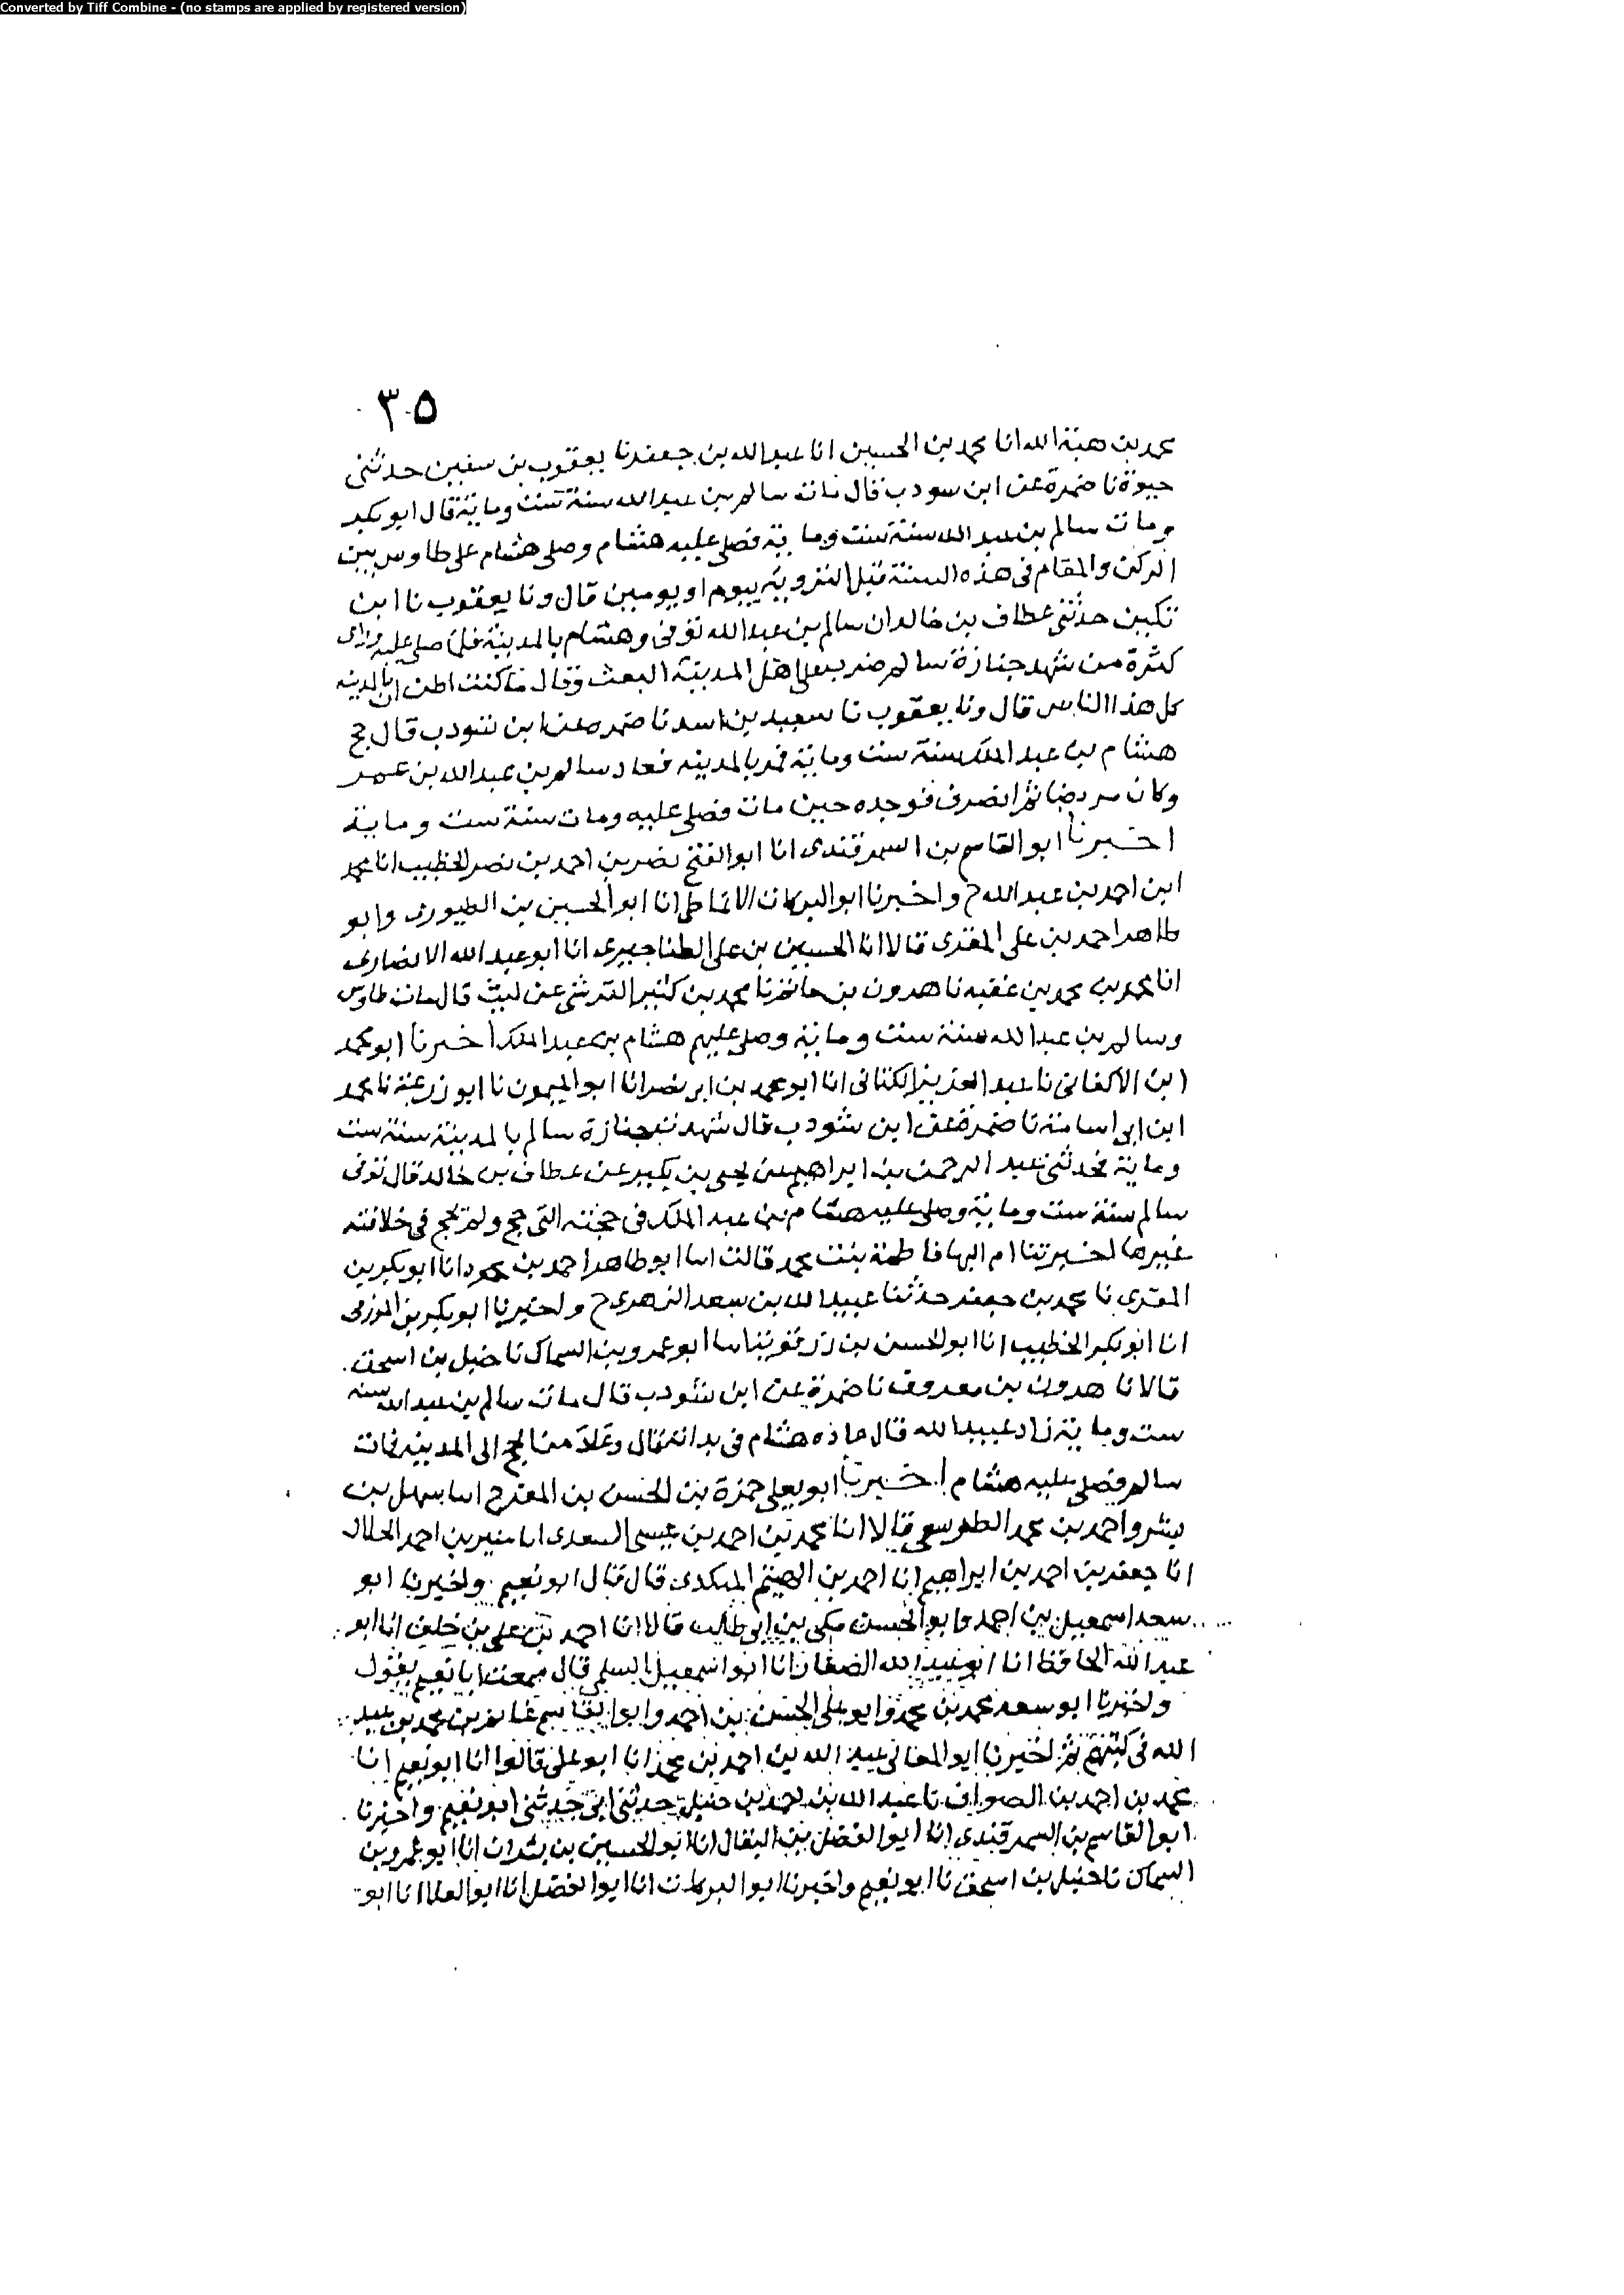 Converted by Tiff Combine - (no stamps are applied by registered version)
٣٠٥
محمد بن هبة الله انا محمد بن الحسين انا عبد الله بن جعفر نا يعقوب بن سفين حدثنى
حيوة نا ضمرة عن ابن سودب قال مات سالم بن عبد الله سنة ست وماية قال ابو بكر
ومات سالم بن عبد الله سنة ست وماية فصلى عليه هشام وصلى هشام على طاوس بين
الركن والمقام فى هذه السنة قبل التروية بيوم او يومين قال ونا يعقوب نا ابن
بكير حدثنى عطاف بن خالد ان سالم بن عبد الله توفى وهشام بالمدينة فلما صلى عليه وراى
كثرة من شهد جنازة سالم ضرب على اهل المدينة البعث وقال ما كنت اظن ان بالمدينه
كل هذا الناس قال ونا يعقوب نا سعيد بن اسد نا ضمره عن ابن شودب قال حج
هشام بن عبد الملك سنة ست وماية فمر بالمدينه فعاد سالم بن عبد الله بن عمر
وكان مريضا ثم انصرف فوجده حين مات فصلى عليه ومات سنة ست وماية
اخبرنا ابو القاسم بن السمرقندى انا ابو الفتح نصر بن احمد بن نصر الخطيب انا محمد
ابن احمد بن عبد الله ح واخبرنا ابو البركات الانماطى انا ابو الحسين بن الطيورى وابو
طاهر احمد بن على المقرى قالا انا الحسين بن على الطناجيرى انا ابو عبد الله الانصارى
انا محمد بن محمد بن عقبه نا هرون بن حاتم نا محمد بن كثير القرشى عن ليث قال مات طاوس
وسالم بن عبد الله سنة ست وماية وصلى عليهم هشام بن عبد الملك اخبرنا ابو محمد
ابن الاكفانى نا عبد العزيز الكتانى انا ابو محمد بن ابى نصر انا ابو الميمون نا ابو زرعة نا محمد
ابن ابى اسامة نا ضمرة عن ابن شودب قال شهدت جنازة سالم بالمدينة سنة ست
وماية فحدثنى عبد الرحمن بن ابراهيم عن يحيى بن بكير عن عطاف بن خالد قال توفى
سالم سنة ست وماية وصلى عليه هشام بن عبد الملك فى حجته التى حج ولم يحج فى خلافته
غيرها اخبرتنا ام البها فاطمة بنت محمد قالت انا ابو طاهر احمد بن محمود انا ابو بكر بن
المقرى نا محمد بن جعفر حدثنا عبيد الله بن سعد الزهرى ح واخبرنا ابو بكر بن المزرفى
انا ابو بكر الخطيب انا ابو الحسن بن رزقويه انا ابو عمرو بن السماك نا حنبل بن اسحق
قالا نا هرون بن معروف نا ضمرة عن ابن شودب قال مات سالم بن عبد الله سنه
ست وماية زاد عبيد الله قال عاده هشام فى قال من الحج الى المدينه فمات
سالم فصلى عليه هشام اخبرنا ابو يعلى حمزة بن الحسن بن المفرج انا سهل بن
بشر واحمد بن محمد الطرسوسى قالا انا محمد بن احمد بن عيسى السعدى انا منير بن احمد الخلال
انا جعفر بن احمد بن ابراهيم انا احمد بن الهيثم البلدى قال قال ابو نعيم واخبرنا ابو
سعد اسمعيل بن احمد وابو الحسن مكى بن ابى طالب قالا انا احمد بن على بن خلف انا ابو
عبد الله الحافظ انا ابو عبد الله الصفار انا ابو اسمعيل السلمى قال سمعت ابا نعيم يقول
واخبرنا ابو سعد محمد بن محمد وابو على الحسن بن احمد وابو القاسم غانم بن محمد بن عبيد
الله فى كتبهم ثم اخبرنا ابو المعالى عبد الله بن احمد بن محمد انا ابو على قالوا انا ابو نعيم انا
محمد بن احمد بن الصواف نا عبد الله بن احمد بن حنبل حدثنى ابى حدثنى ابو نعيم واخبرنا
ابو القاسم بن السمرقندى انا ابو الفضل بن البقال انا ابو الحسين بن بشران انا ابو عمرو بن
السماك نا حنبل بن اسحق نا ابو نعيم واخبرنا ابو البركات انا ابو الفضل انا ابو العلا انا ابو